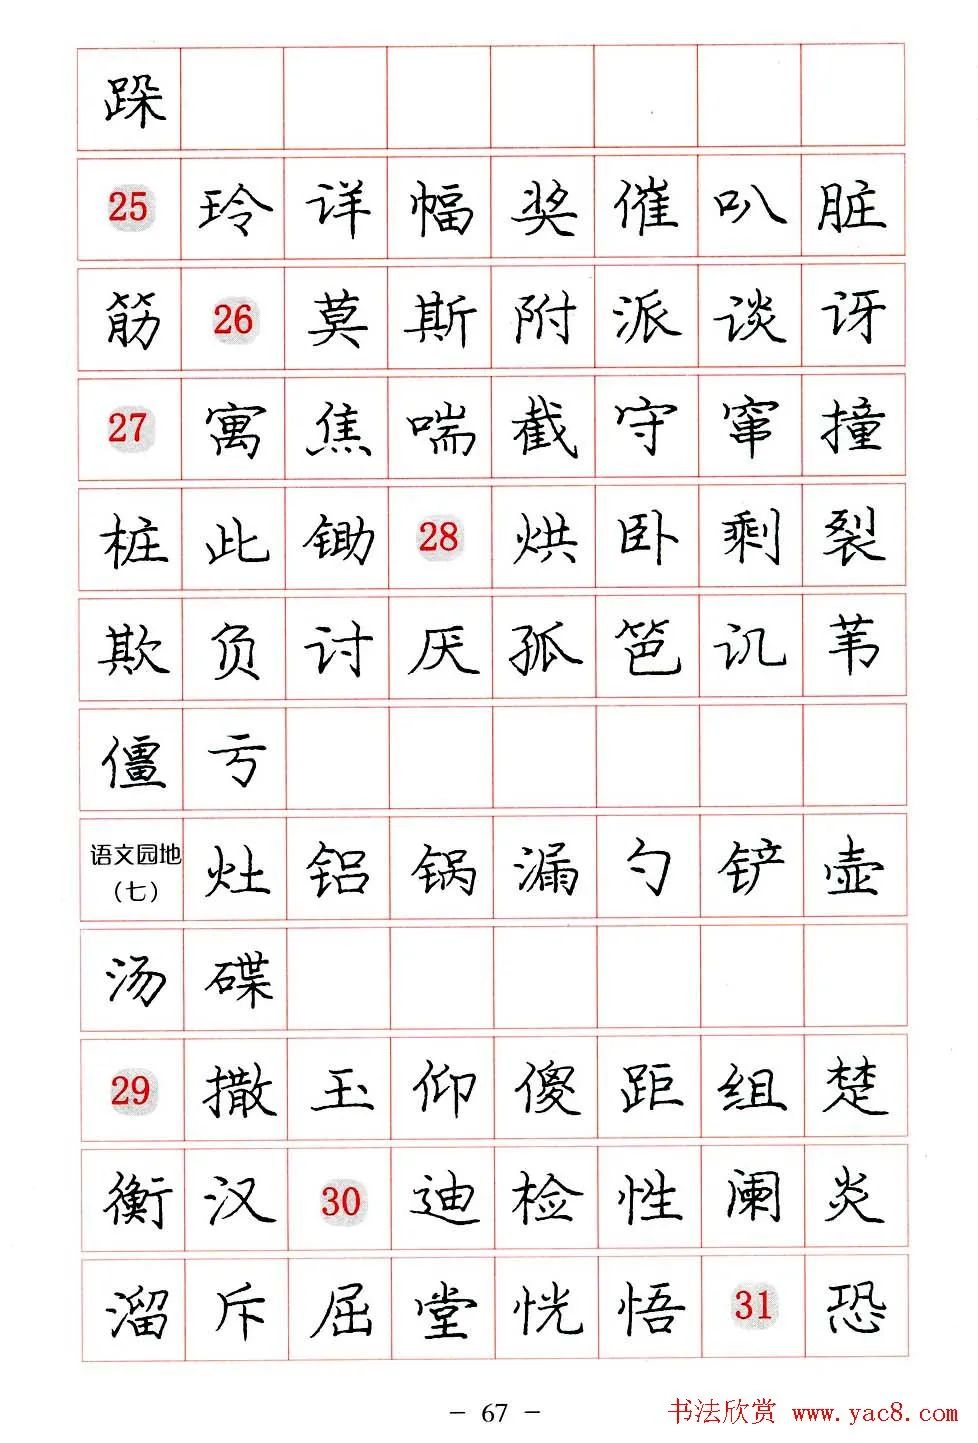 跺
25 玲 详 幅 奖 催 叭 脏
筋 26 莫 斯 附 派 谈 讶
27 寓 焦 喘 截 守 窜 撞
桩 此 锄 28 烘 卧 剩 裂
欺 负 讨 厌 孤 笆 讥 苇
僵 亏
语文园地（七） 灶 铝 锅 漏 勺 铲 壶
汤 碟
29 撒 玉 仰 傻 距 组 楚
衡 汉 30 迪 检 性 阑 炎
溜 斥 屈 堂 恍 悟 31 恐
– 67 –
书法欣赏 www.yac8.com